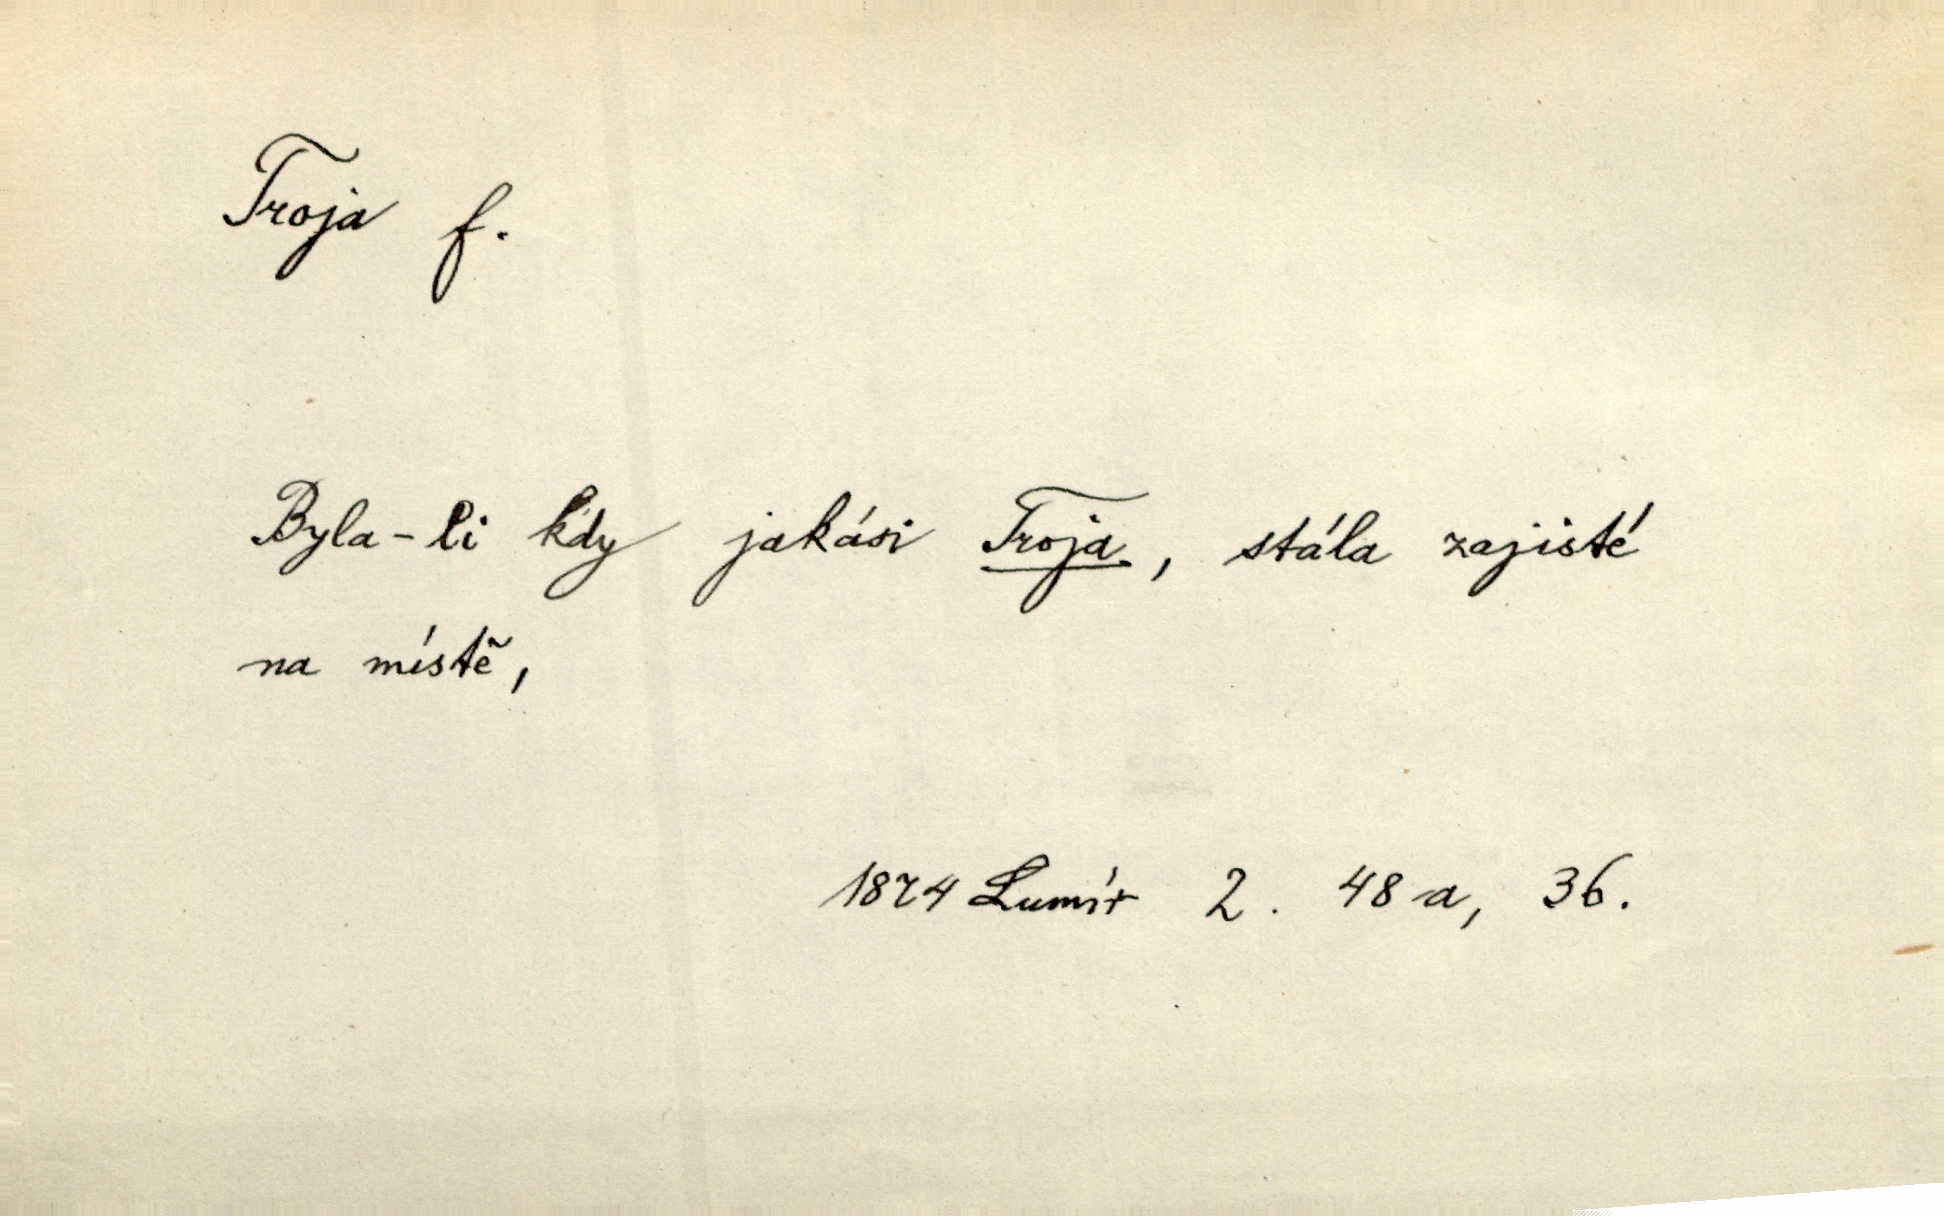 Troja f.
Byla-li kdy jakási Troja, stála zajisté
na místě,
1874 Lumír 2. 48a, 36.